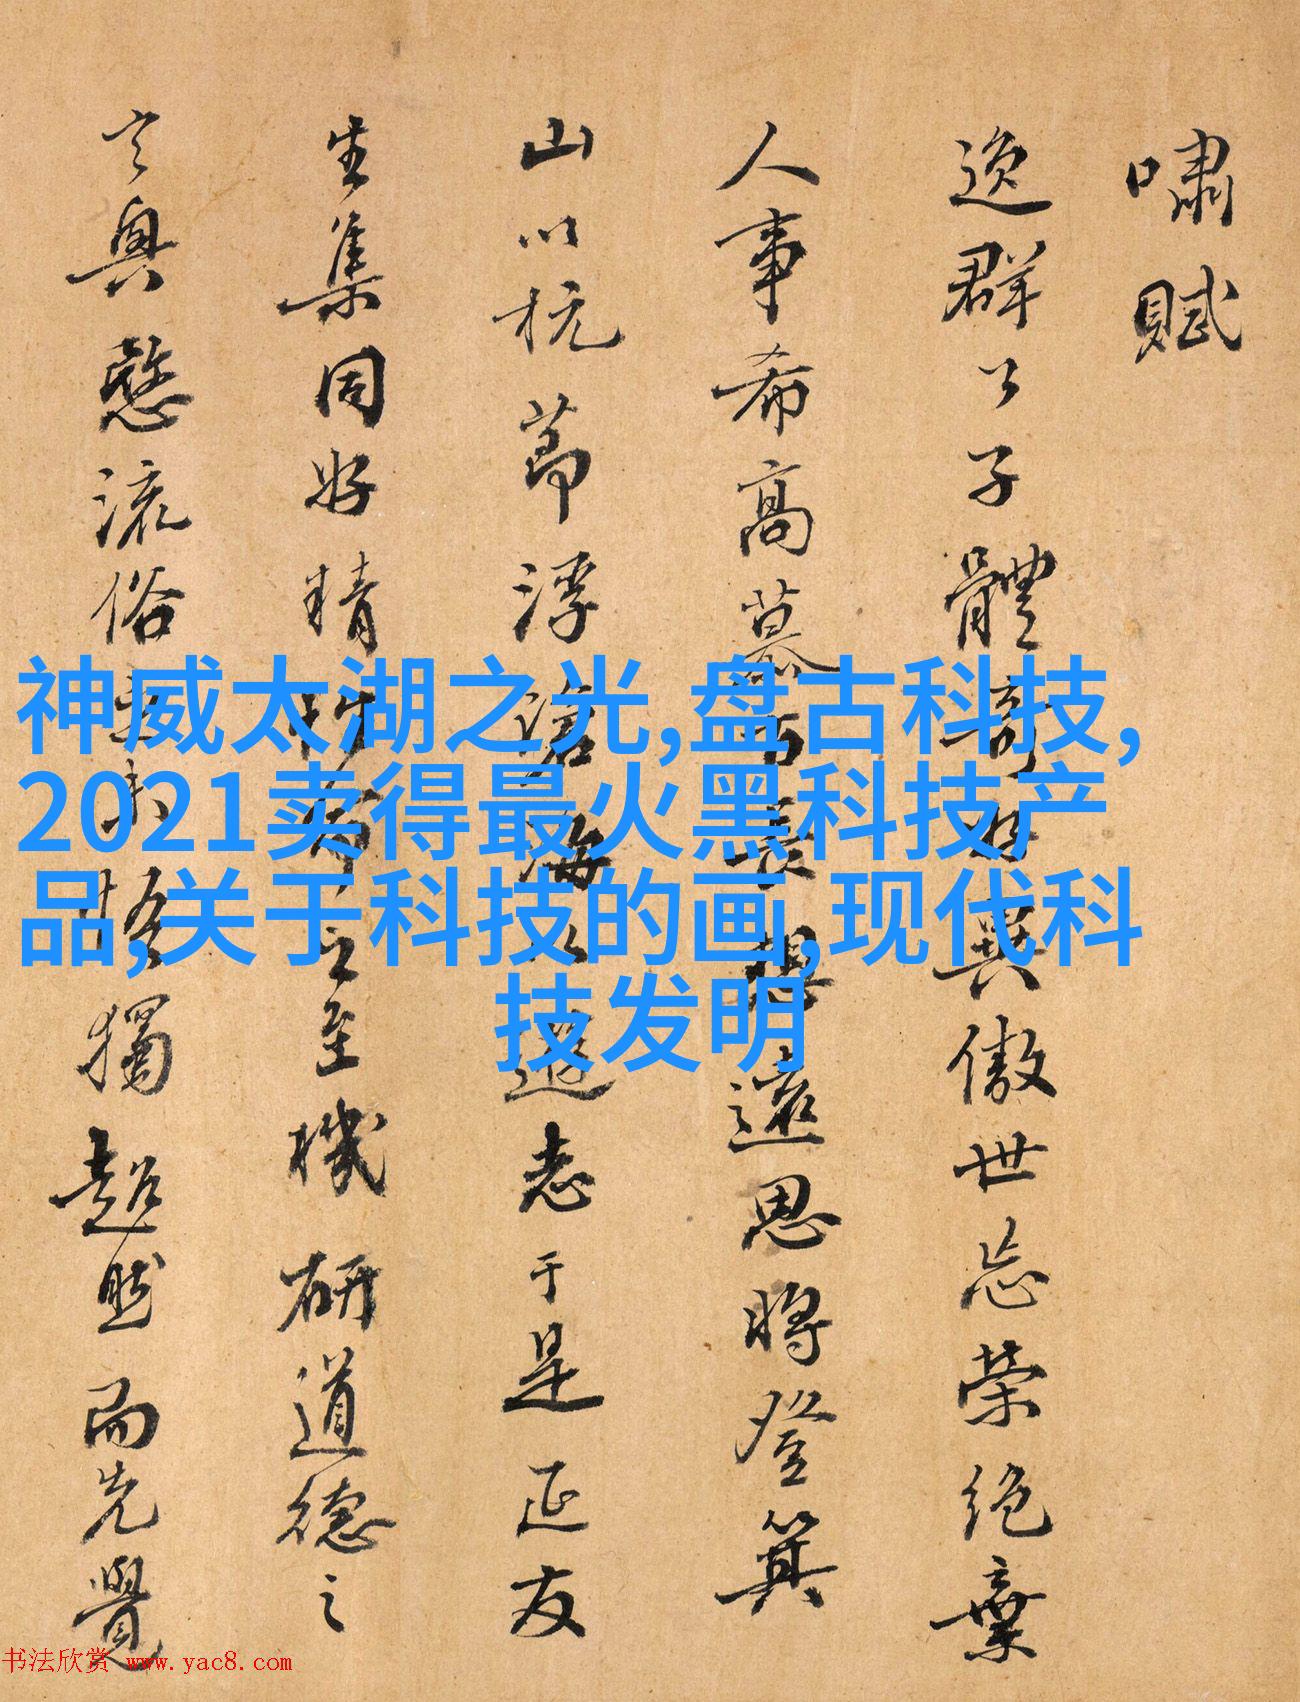 嘯賦
逸群公子體奇好異傲世忘榮絕棄
人事希高慕古長想遠思將登箕
山以抗節浮滄海以遊志于是延友
生集同好精性命之至機研道德之
玄奧愍流俗之未悟獨超然而先覺
神威太湖之光,盘古科技,
2021卖得最火黑科技产
品,关于科技的画,现代科
技发明
书法欣赏 www.yac8.com